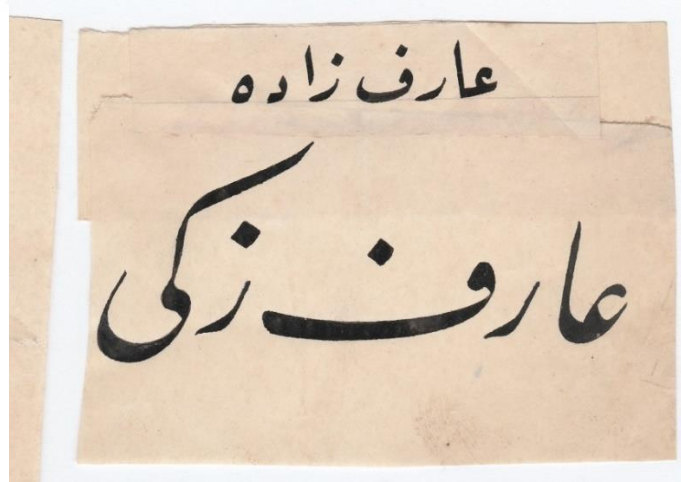 عارف زاده
عارف زکی